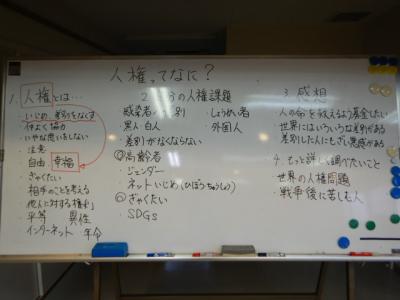 人権ってなに?
1. 人権とは…
・いじめ、差別をなくす
・仲よく協力
・いやな思いをしない
・注意
・自由 幸福
・ぎゃくたい
・相手のことを考える
・他人に対する権利
・平等 異性
・インターネット 年令
2. の人権課題
感染者 別
しょうがい者
黒人・白人
外国人
差別がなくならない
高齢者
ジェンダー
ネットいじめ(ひぼうちゅうしょう)
ぎゃくたい
・SDGs
3. 感想
・人の命を救えるよう募金したい
・世界にはいろいろな差別がある
・差別した人にもざい悪感がある
4. もっと詳しく調べたいこと
・世界の人権問題
・戦争後に苦しむ人